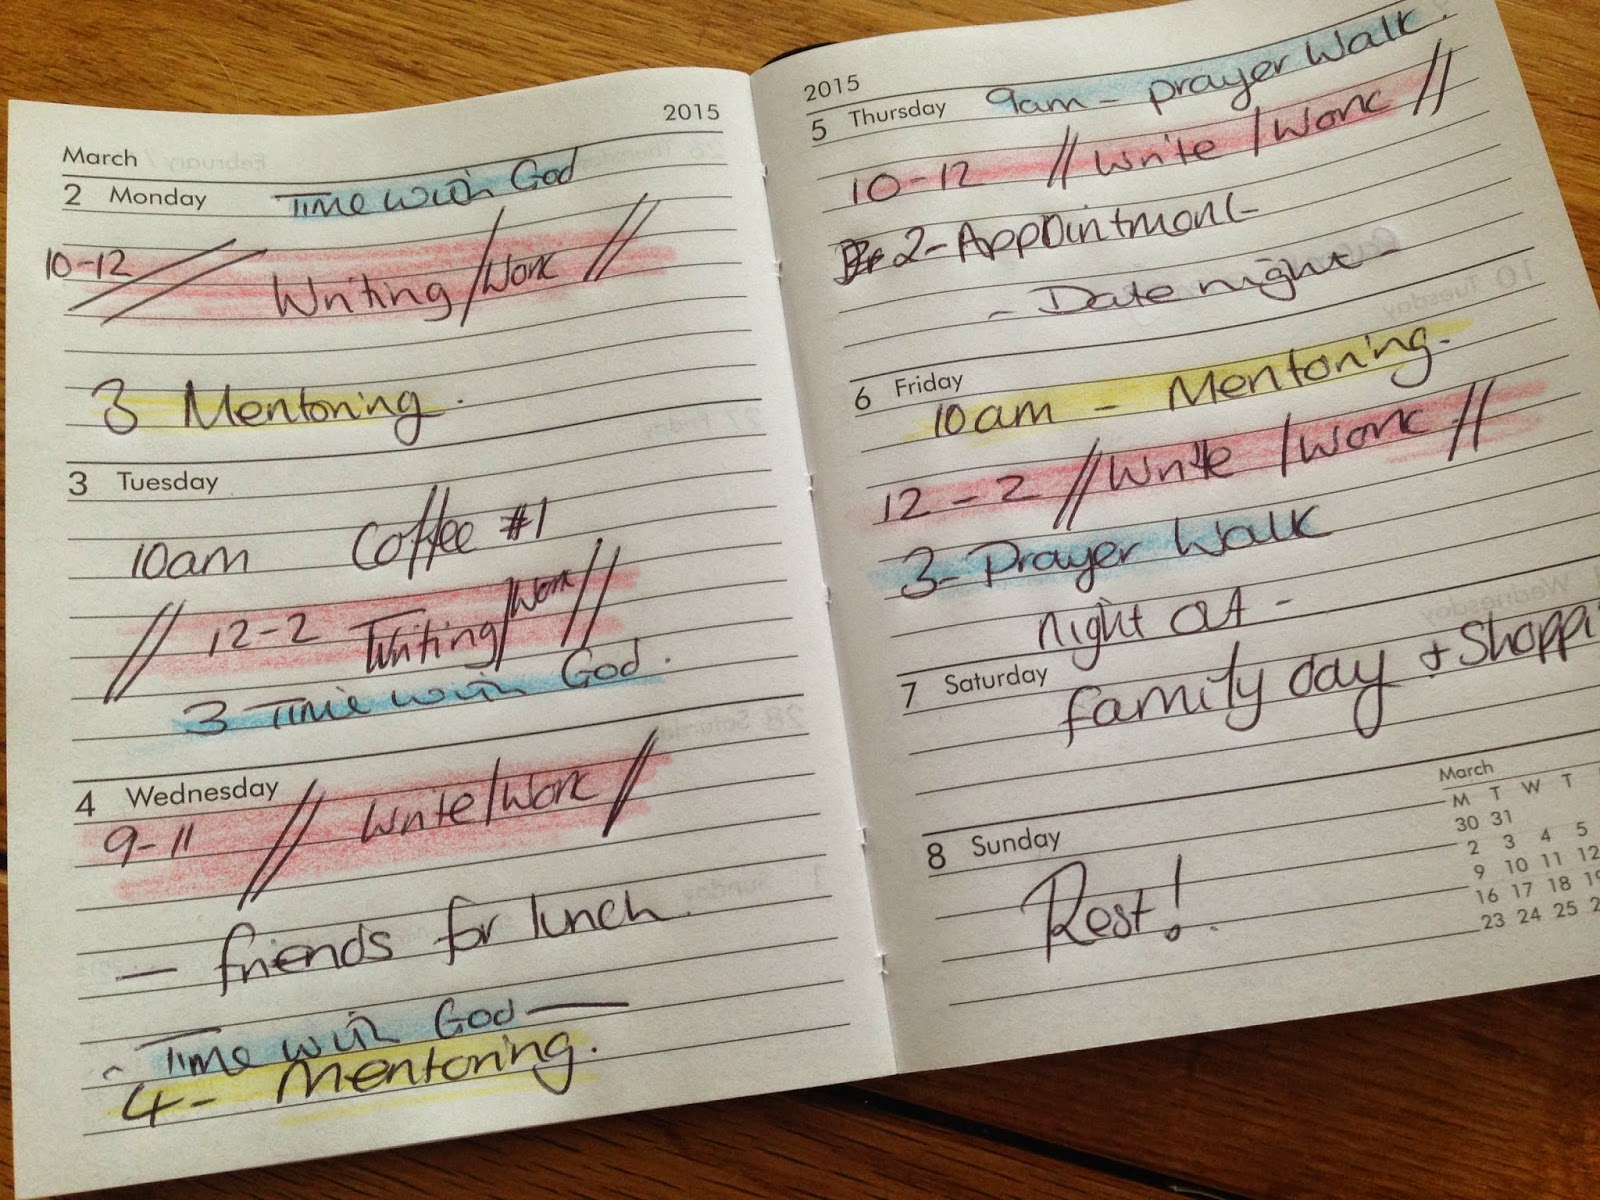 2015
March
2 Monday Time with God
10-12 Writing/Work
3 Mentoring.
3 Tuesday
10am Coffee #1
// 12-2 Writing/Work //
3 Time with God.
4 Wednesday
9-11 // Write/Work //
— friends for lunch.
- Time with God —
4- Mentoring.
2015
5 Thursday 9am - prayer Walk.
10-12 // Write/Work //
2-Appointment-
- Date night -
6 Friday
10am - Mentoring.
12-2 // Write/Work //
3- Prayer Walk
night out -
7 Saturday family day + Shoppi
8 Sunday
Rest!
March
M T W T
30 31
2 3 4 5
9 10 11 12
16 17 18 19
23 24 25 2